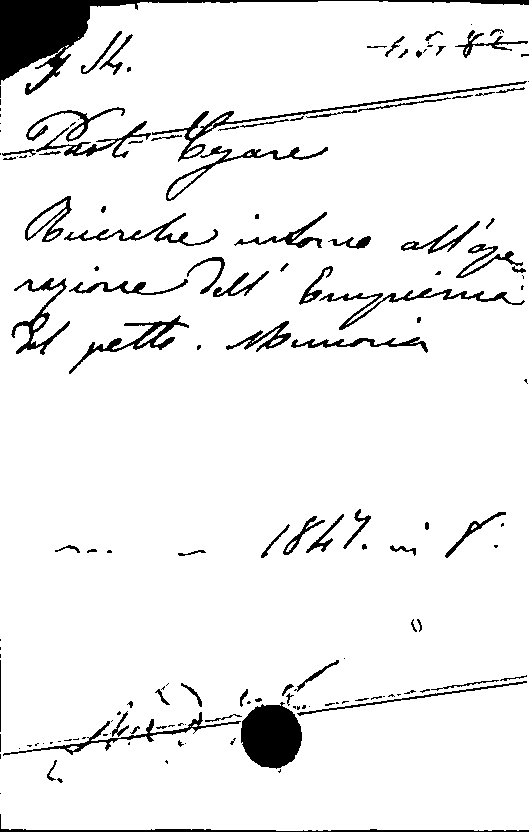 1.5.82
Paoli Cesare
Ricerche intorno all'ope-
razione dell' Empiema
del petto. Memoria
1847. in 8.